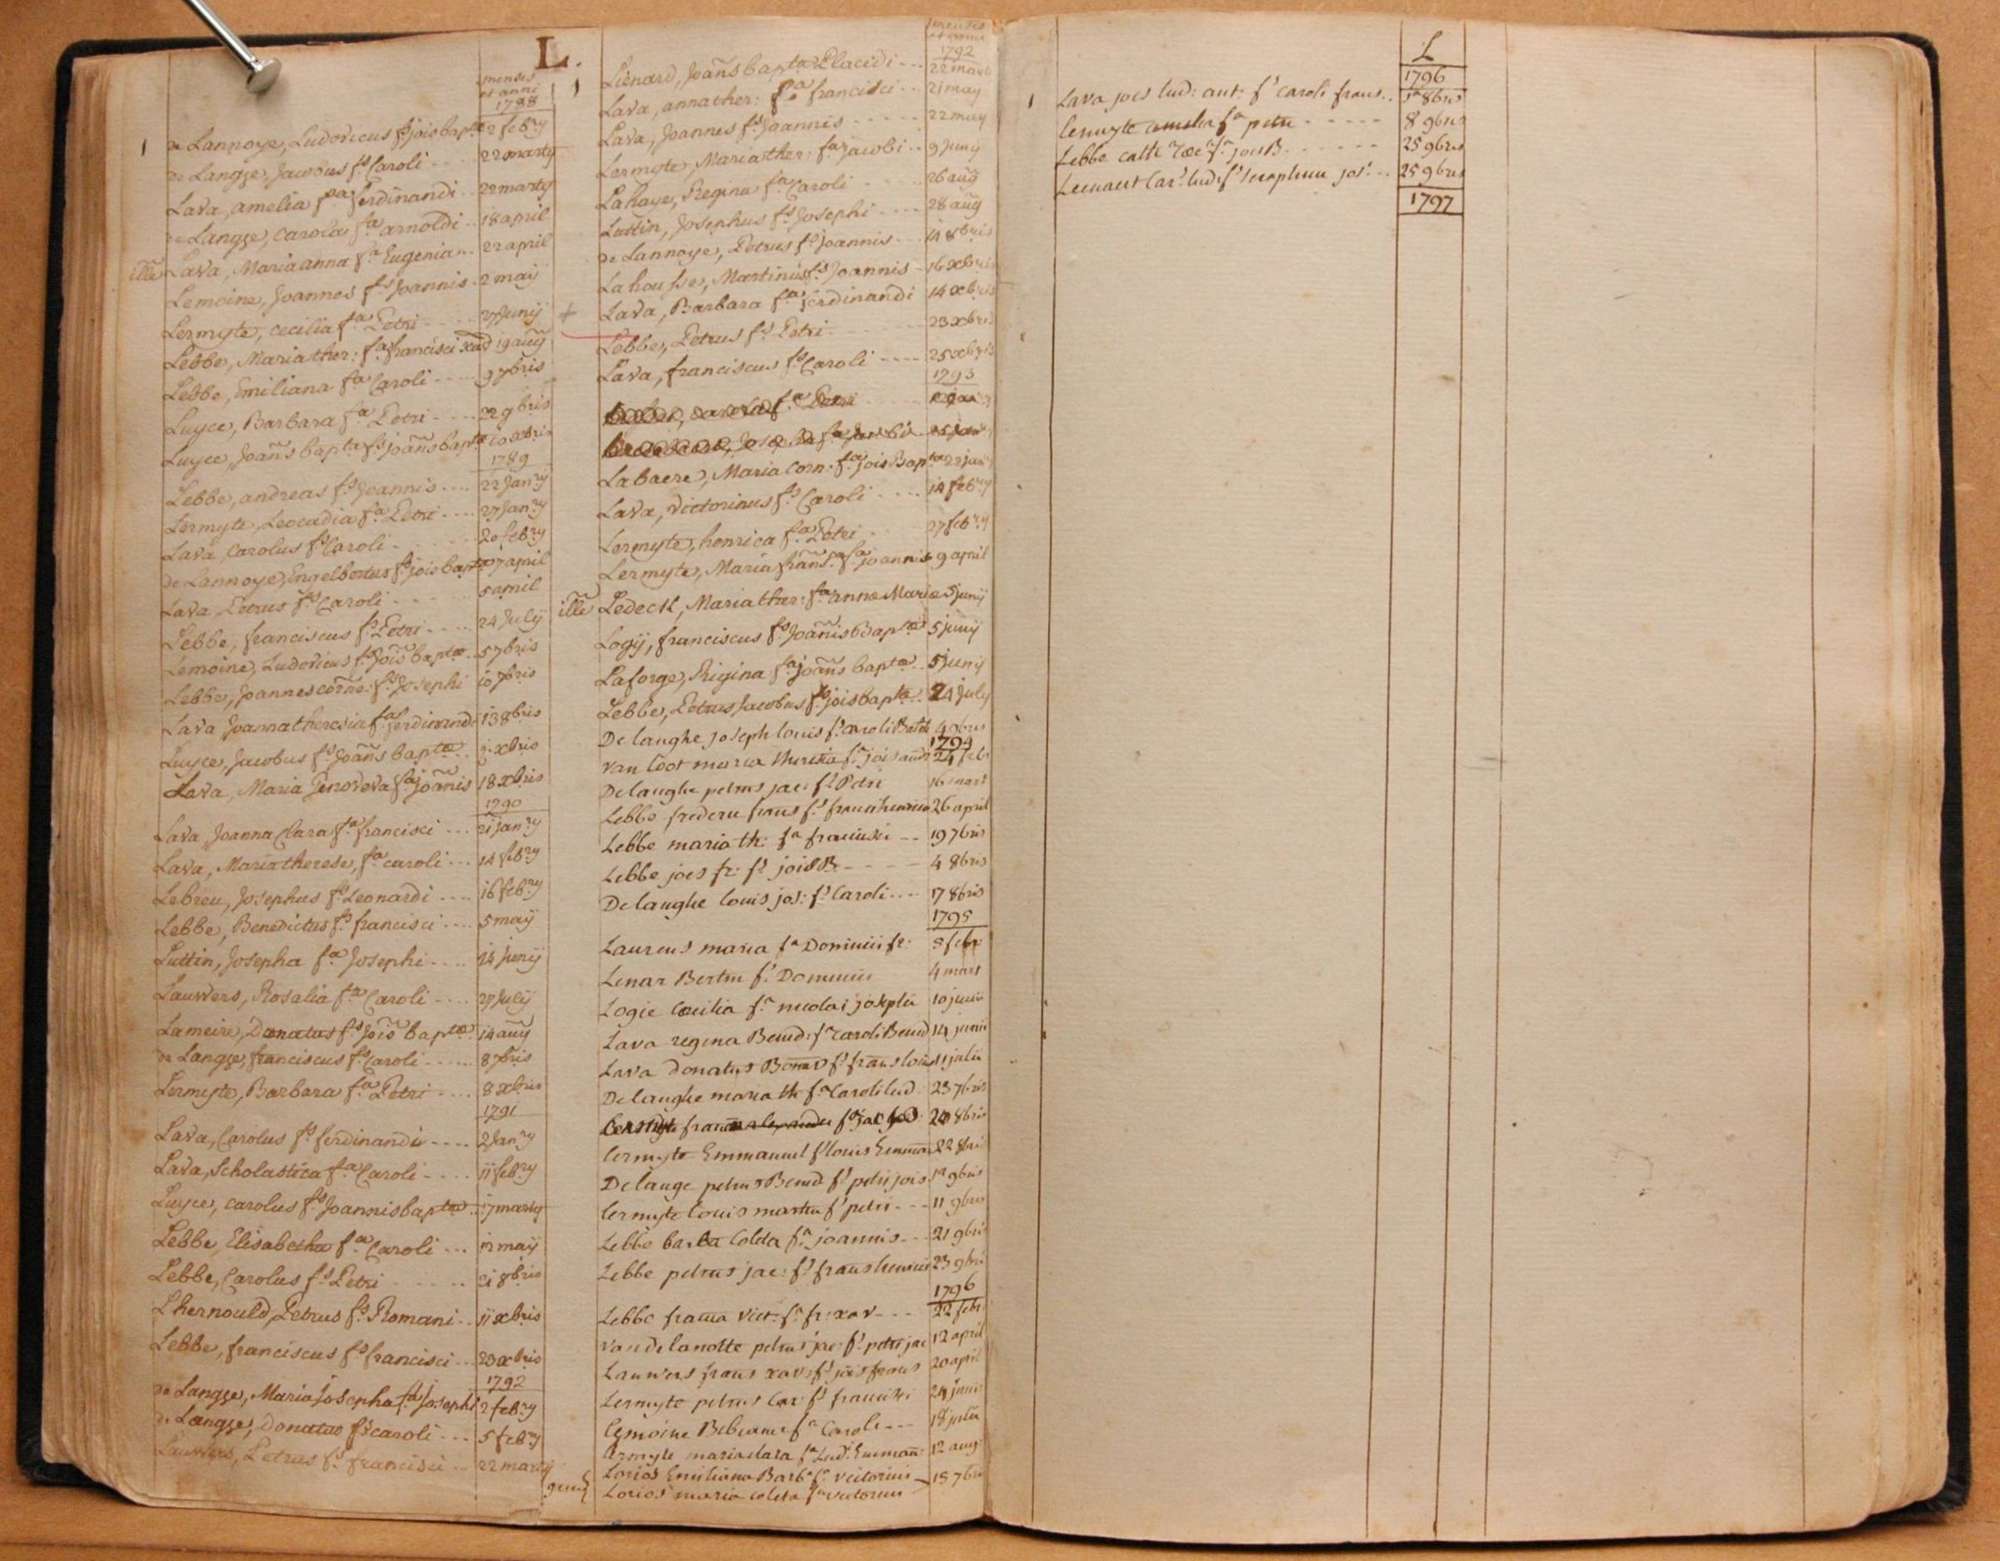 L.
menses et anni
1788
de Lannoye, Ludovicus fs joisbaptæ 2 febry
de Langhe, Jacobus fs Caroli 22 marty
Lava, amelia fa ferdinandi 22 marty
de Langhe, Carola fa arnoldi 18 april
ille Lava, Mariaanna fa Eugenia 22 april
Lemoine, Joannes fs Joannis 2 maij
Lermyte, cecilia fa Petri 27 Junij
Lebbe, Mariather: fa francisci xav 19 aug
Lebbe, Emiliana fa Caroli 9 7bris
Luyce, Barbara fa Petri 22 9bris
Luyce, Joañsbapta fs joañsbaptæ 10 xbris
1789
Lebbe, andreas fs Joannis 22 Janry
Lermyte, Leocadia fa Petri 27 Janry
Lava, Carolus fs Caroli 20 febry
de Lannoye, Engelbertus fs joisbaptæ april
Lava, Petrus fs Caroli 5 april
Lebbe, franciscus fs Petri 24 July
Lemoine, Ludovicus fs Jois baptæ 5 7bris
Lebbe, Joannes corne: fs Josephi 10 7bris
Lava Joannatheresia fa ferdinandi 13 8bris
Luyce, Jacobus fs Joañs baptæ xbris
Lava, Maria Genoveva fa joañis 18 xbris
1790
Lava, Joanna Clara fa francisci 21 janry
Lava, Mariatherese, fa caroli 14 febry
Lebreu, Josephus fs Leonardi 16 febry
Lebbe, Benedictus fs francisci 5 maij
Luttin, Josepha fa Josephi 14 junij
Lauwers, Rosalia fa Caroli 27 Julij
Lameire, Donatus fs Jois baptæ 14 aug
de Langhe, franciscus fs Caroli 8 7bris
Lermyte, Barbara fa Petri 8 xbris
1791
Lava, Carolus fs ferdinandi 2 Janry
Lava, Scholastica fa Caroli 11 febry
Luyce, carolus fs Joannisbaptæ 17 marty
Lebbe, Elisabetha fa Caroli 12 maij
Lebbe, Carolus fs Petri 21 8bris
Lhernould, Petrus fs Romani 11 xbris
Lebbe, franciscus fs francisci 29 xbris
1792
de Langhe, Maria josepha fa Josephi 2 febry
de Langhe, Donatus fs caroli 5 febry
Lauwers, Petrus fs francisci 22 marty
menses et anni
1792
Lienard, Joañs bapta Placidi 22 mart
Lava, annather: fa francisci 21 may
Lava, Joannes fs Joannis 22 may
Lermyte, Mariather: fa Jacobi 9 Juny
Lahaye, Regina fa Caroli 26 aug
Luttin, Josephus fs Josephi 28 aug
de Lannoye, Petrus fs Joannis 14 8bris
Lahousse, Martinus fs Joannis 16 xbris
Lava, Barbara fa ferdinandi 14 xbris
Lebbe, Petrus fs Petri 23 xbris
Lava, franciscus fs Caroli 25 xbris
1793
Labaere, Maria Corn: fa joisBaptæ 22 jan
Lava, victorinus fs Caroli 14 febry
Lermyte, henrica fa Petri 27 febry
Lermyte, Maria frans:ca fa joannis 9 april
ille Ledeck, Mariather: fa annæ Mariæ 5 junij
Logij, franciscus fs JoañisBaptæ 5 junij
Laforge, Rigina fa joañs baptæ 5 junij
Lebbe, Petrus Jacobus fs joisbaptæ 24 July
De langhe joseph louis fs caroli Bath 4 xbris
1794
van loot maria theresia fa jois and 24 feb
De langhe petrus jac: fs Petri 16 mart
Lebbe frederu frans fs frans henrici 26 april
Lebbe maria th: fa francisci 19 7bris
Lebbe joes fr: fs jois B 4 8bris
De langhe louis jos: fs Caroli 17 8bris
1795
Laurens maria fa Dominici fr: 8 febr
Lenar Bertin fs Dominici 4 mart
Logie Cecilia fa nicolai josephi 10 junii
Lava regina Bened: fa Caroli Bened 14 junii
Lava Donatus Bonav fs frans louis julii
De langhe maria th fa Caroli lud 23 7bris
Lermyte Emmanuel fs louis Emman 22 8bri
De lange petrus Bened fs petri jois 1a 9bris
Lermyte louis martin fs petri 11 9bris
Lebbe barba Coleta fa joannis 21 9bris
Lebbe petrus jac: fs frans henrici 23 9bri
1796
Lebbe franca vict: fa fr: xav 22 febr
van de lanotte petrus jac: fs petri jac 12 april
Lauwers frans xav: fs jois frans 20 april
Lermyte petrus Car: fs francisci 24 junii
Lemoine Bibiane fa Caroli 18 julii
Lermyte maria clara fa Lud: Emman: 12 aug
Lorios Emiliana Barb: fa victorini 15 7bri
Lorios maria coleta fa victorini
L
1796
Lava joes lud: ant: fs Caroli frans 1a 8bris
Lermyte amelia fa petri 8 9bris
Lebbe cath: fa jois B 25 9bris
Leenaert Car: lud: fs seraphin jos: 25 9bris
1797